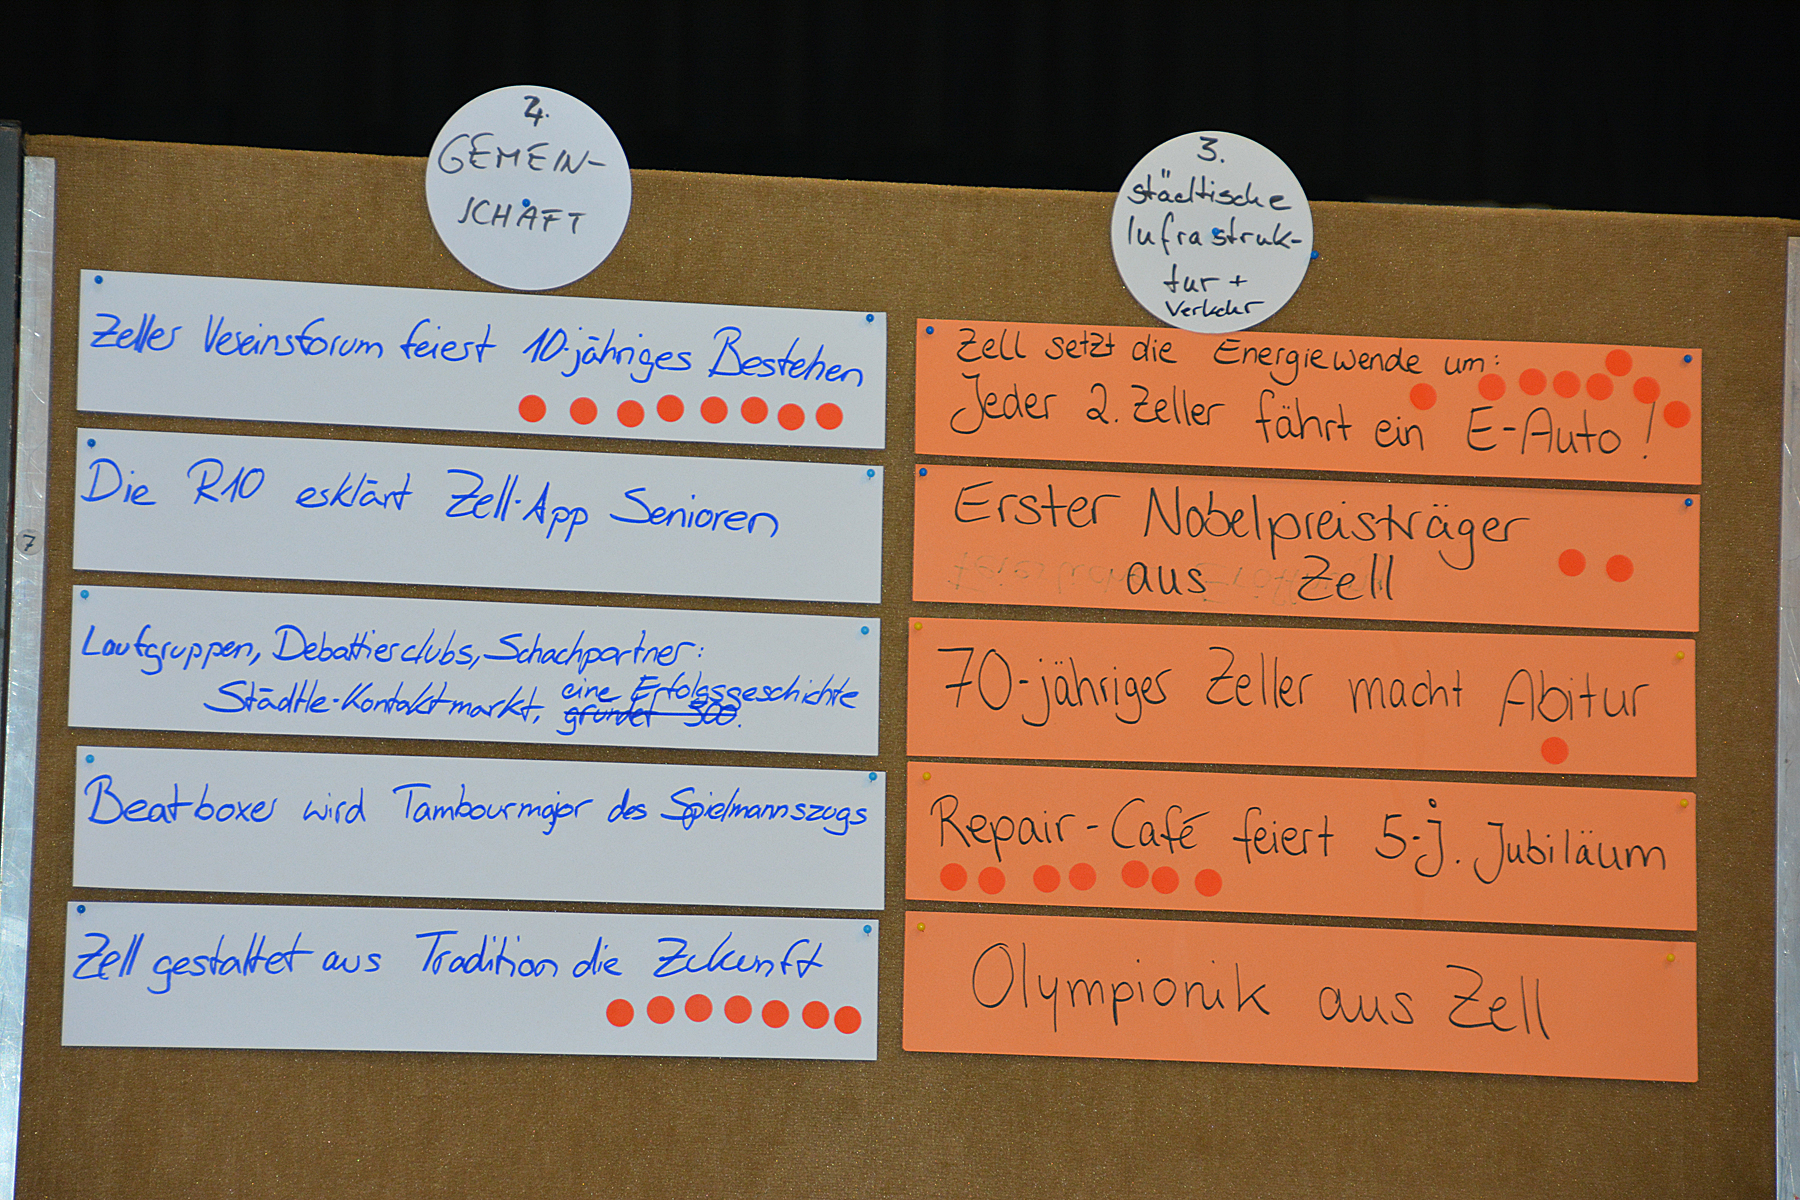 4.
GEMEIN-
SCHAFT
Zeller Vereinsforum feiert 10-jähriges Bestehen
Die R10 erklärt Zell-App Senioren
Laufgruppen, Debattierclubs, Schachpartner:
Städtle-Kontaktmarkt, eine Erfolgsgeschichte
gründet 500.
Beatboxer wird Tambourmajor des Spielmannszugs
Zell gestaltet aus Tradition die Zukunft
3.
städtische
Infrastruk-
tur +
Verkehr
Zell setzt die Energiewende um:
Jeder 2. Zeller fährt ein E-Auto!
Erster Nobelpreisträger
aus Zell
70-jähriges Zeller macht Abitur
Repair-Café feiert 5-j. Jubiläum
Olympionik aus Zell
7